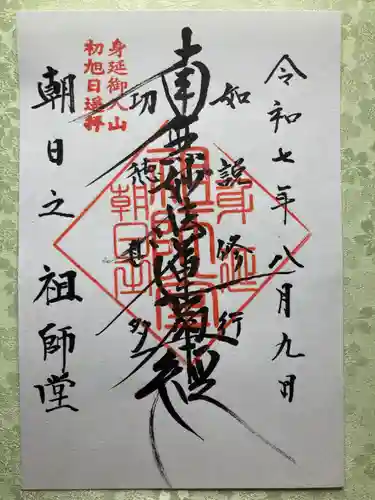 令和七年八月九日
如説修行
南無妙法蓮華経
功徳甚多
身延御入山
初旭日遥拝
朝日之祖師堂